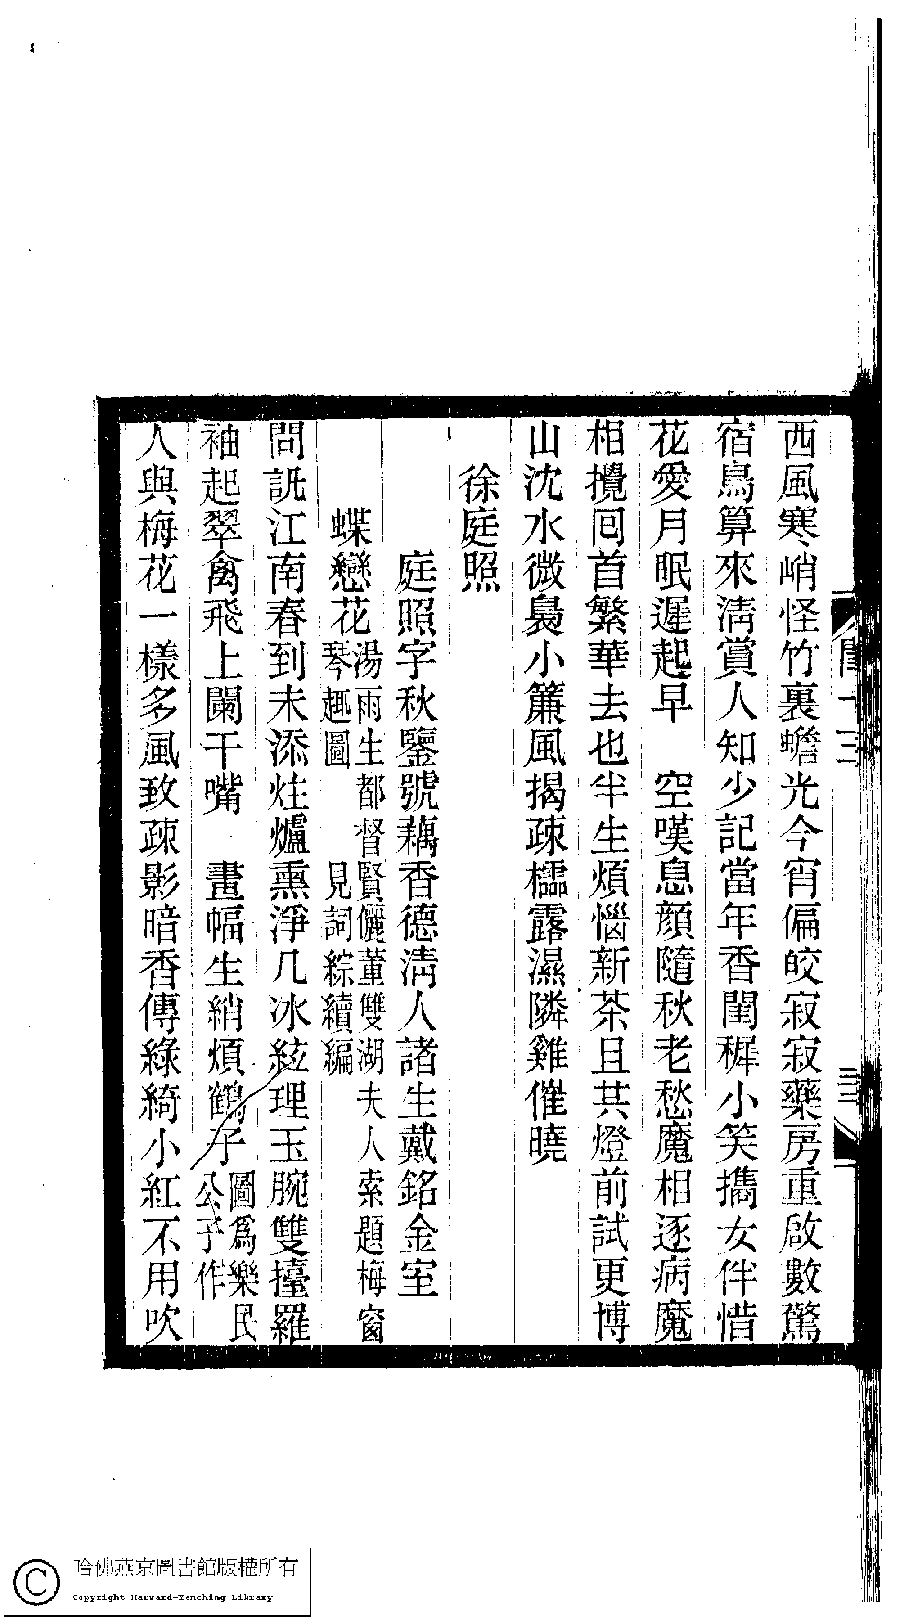 西風寒峭怪竹裏蟾光今宵偏皎寂寂藥房重啟數驚
宿鳥算來清賞人知少記當年香閨穉小笑攜女伴惜
花愛月眠遲起早　空嘆息顔隨秋老愁魔相逐病魔
相攪回首繁華去也半生煩惱新茶且共燈前試更博
山沈水微裊小簾風揭疎櫺露濕隣雞催曉
徐庭照
庭照字秋鑒號藕香德清人諸生戴銘金室
蝶戀花湯雨生都督賢儷董雙湖夫人索題梅窗
琴趣圖　見詞綜續編
問訊江南春到未添炷爐熏淨几冰絃理玉腕雙擡羅
袖起翠禽飛上闌干嘴　畫幅生綃煩鶴子圖爲樂民
公子作
人與梅花一樣多風致疎影暗香傳綠綺小紅不用吹
哈佛燕京圖書館版權所有
Copyright Harvard-Yenching Library